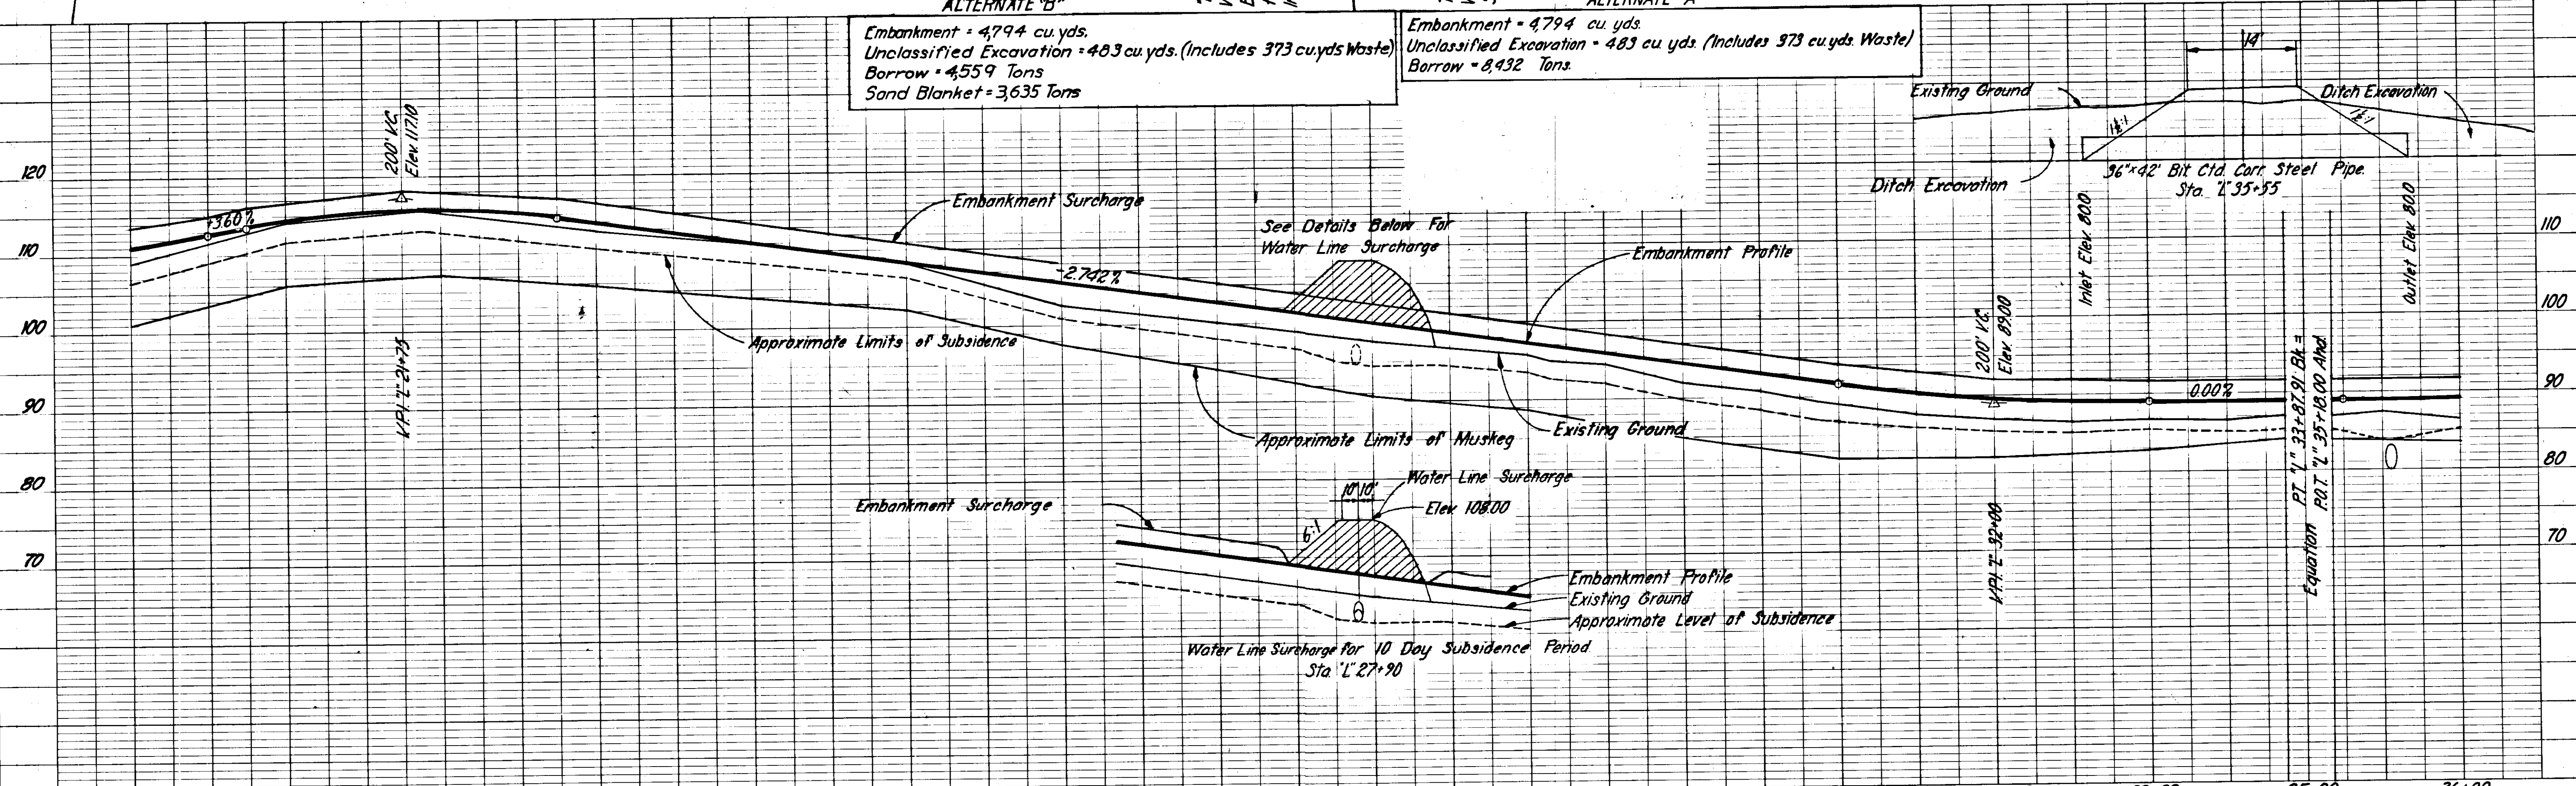 ALTERNATE "B"
ALTERNATE "A"
Embankment = 4,794 cu. yds.
Unclassified Excavation = 483 cu. yds. (Includes 373 cu. yds Waste)
Borrow = 4,559 Tons
Sand Blanket = 3,635 Tons
Embankment = 4,794 cu. yds.
Unclassified Excavation = 483 cu. yds. (Includes 373 cu. yds. Waste)
Borrow = 8,432 Tons.
14'
Existing Ground
Ditch Excavation
1½:1
1½:1
Ditch Excavation
36"x42' Bit. Ctd. Corr. Steel Pipe.
Sta. "L" 35+55
Inlet Elev. 80.0
Outlet Elev. 80.0
200' V.C.
Elev. 117.10
120
110
100
90
80
70
+3.60%
Embankment Surcharge
See Details Below For
Water Line Surcharge
Embankment Profile
-2.742%
Approximate Limits of Subsidence
V.P.I. "L" 21+75
Approximate Limits of Muskeg
Existing Ground
200' V.C.
Elev. 89.00
0.00%
110
100
90
80
70
V.P.I. "L" 32+00
Equation P.T. "L" 33+87.91 Bk. =
P.O.T. "L" 35+18.00 Ahd.
Embankment Surcharge
10' 10'
Water Line Surcharge
Elev. 108.00
6:1
Embankment Profile
Existing Ground
Approximate Level of Subsidence
Water Line Surcharge for 10 Day Subsidence Period
Sta. "L" 27+90